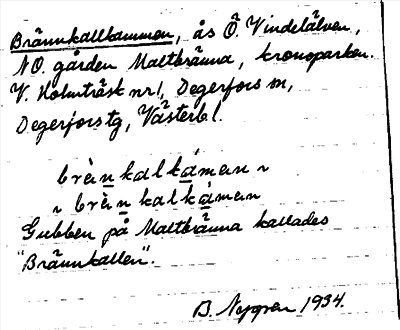 Brännkallkammen, ås Ö. Vindelälven,
NO. gården Maltbränna, kronoparken.
V. Holmträsk nr1, Degerfors sn,
Degerfors tg, Västerb l.
brèn kalkáman ~
~ brèn kalkáman
Gubben på Maltbränna kallades
"Brännkallen".
B. Nygren 1934.